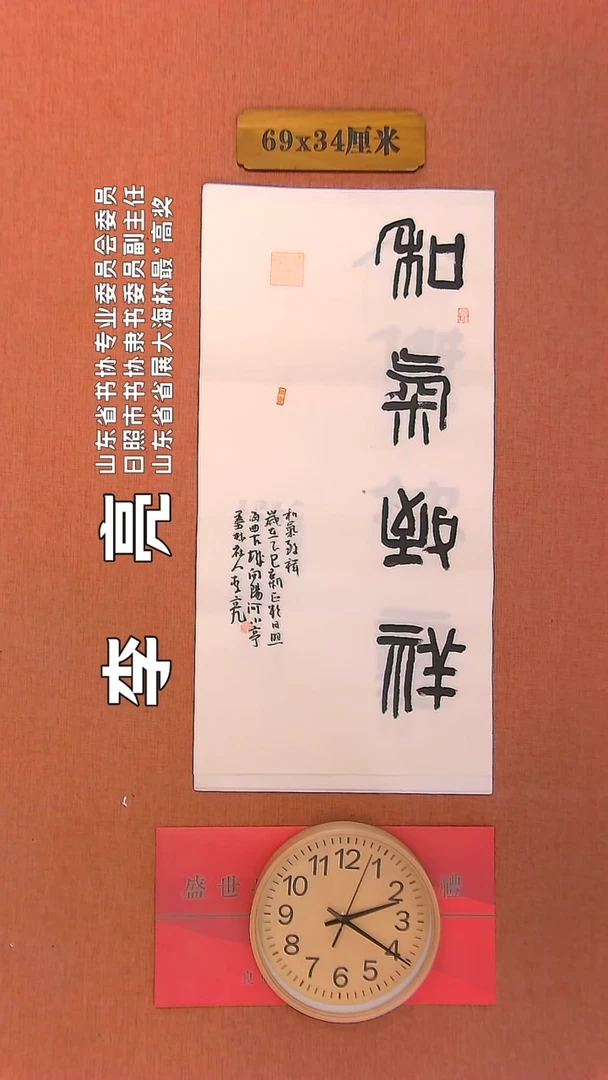 69x34厘米
山东省书协专业委员会委员
日照市书协隶书委员副主任
山东省省展大海杯最*高奖
李亮
和氣致祥
和氣致祥
歲在乙巳新正於日照
向陽河小亭
李亮
盛世 禮
12
1
2
3
4
5
6
7
8
9
10
11